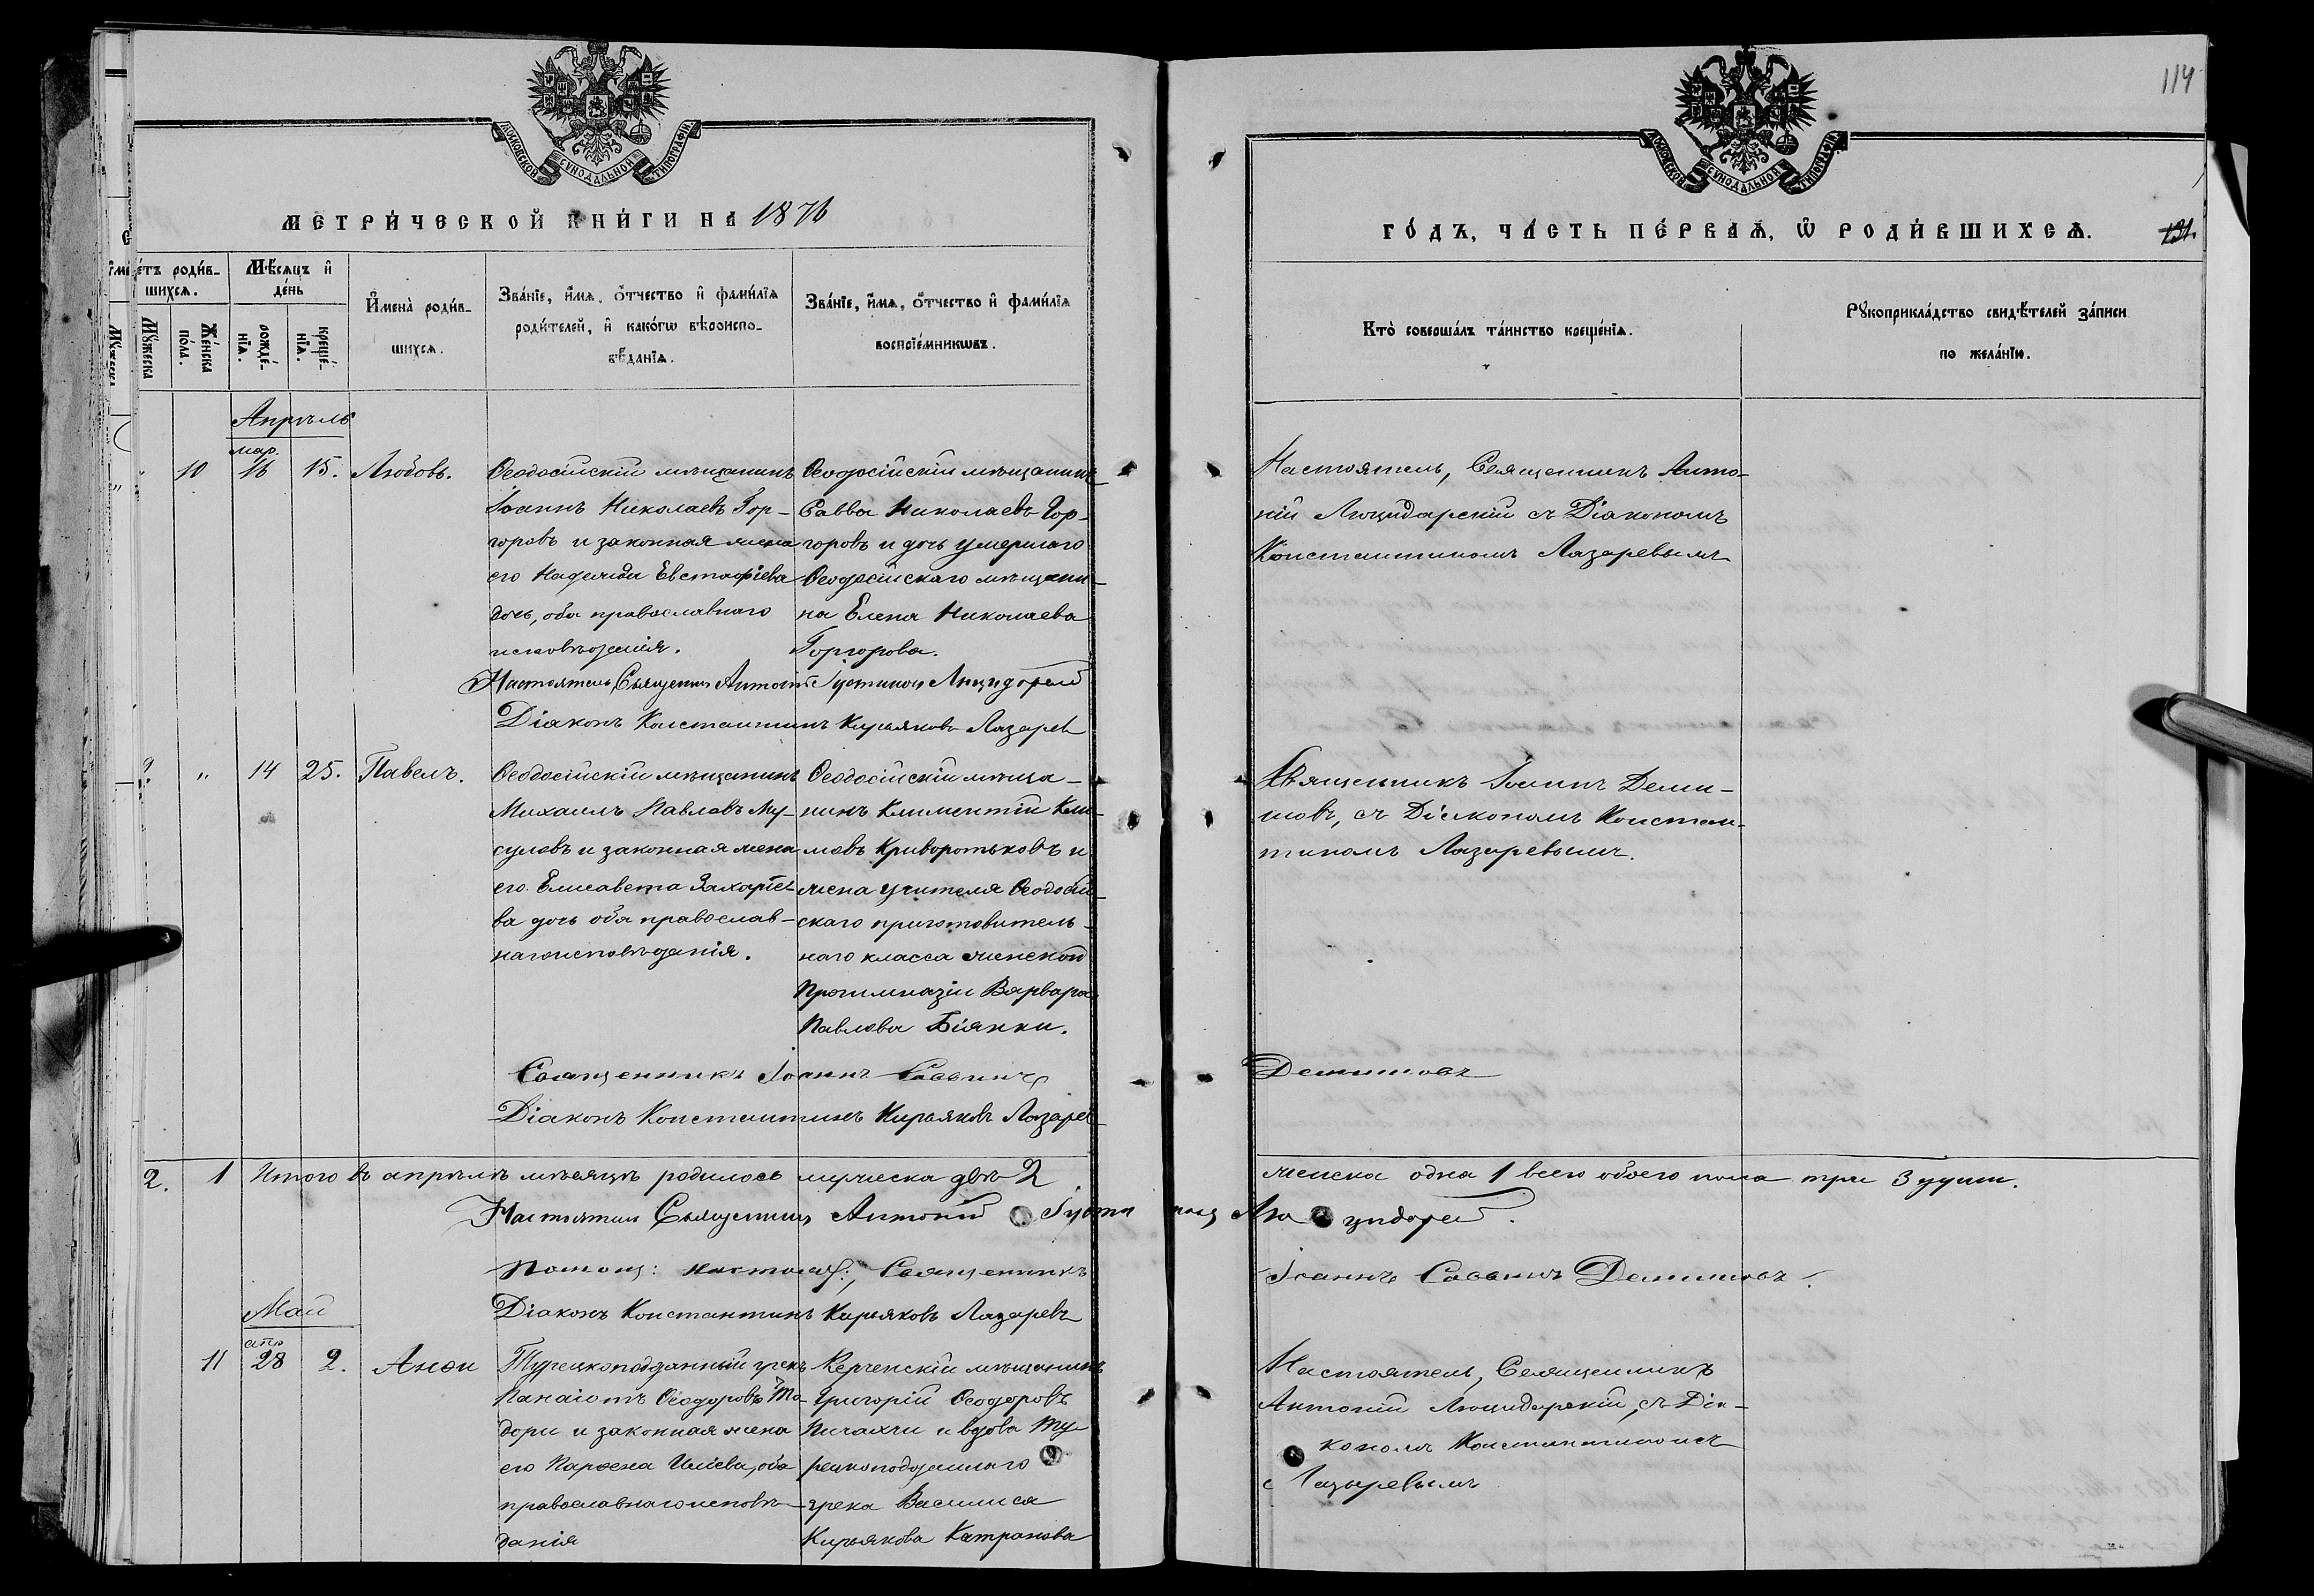 114
МОСКОВСКОЙ СУНОДАЛЬНОЙ ТИПОГРАФІИ.
МЕТРИ́ЧЕСКОЙ КНИ́ГИ НА 1876
Сче́тъ роди́в-
шихся.
Мѣ́сяцъ и
де́нь
Му́жеска
Же́нска
по́ла.
рожде́-
нія.
креще́-
нія.
Имена̀ роди́в-
шихся.
Зва́ніе, и́мя, о́тчество и фами́лія
роди́телей, и како́гѡ вѣроиспо-
вѣ́данія.
Зва́ніе, и́мя, о́тчество и фами́лія
воспріе́мникѡвъ.
Апрѣль
мар.
10 16 15. Любовь.
Ѳеодосійскій мѣщанинъ
Іоаннъ Николаевъ Гор-
горовъ и законная жена
его Надежда Евстафіева
дочь, оба православнаго
исповѣданія.
Ѳеодосійскій мѣщанинъ
Савва Николаевъ Гор-
горовъ и дочь умершаго
Ѳеодосійскаго мѣщани-
на Елена Николаева
Горгорова.
Настоятель, Священникъ Антоній Іустиновъ
Діаконъ Константинъ Кирьяковъ Лазаревъ
2. " 14 25. Павелъ.
Ѳеодосійскій мѣщанинъ
Михаилъ Павловъ Му-
суловъ и законная жена
его Елисавета Захаріе-
ва дочь оба православ-
наго исповѣданія.
Ѳеодосійскій мѣща-
нинъ Климентій Кли-
мовъ Криворотьковъ и
жена учителя Ѳеодосій-
скаго приготовитель-
наго класса женской
Прогимназіи Варвара
Павлова Біянки.
Священникъ Іоаннъ Саввинъ
Діаконъ Константинъ Кирьяковъ Лазаревъ
2. 1 Итого въ апрѣлѣ мѣсяцѣ родилось мужеска двѣ 2
Настоятель Священникъ Антоній Іусти
Помощ: настоят:, Священникъ
Діаконъ Константинъ Кирьяковъ Лазаревъ
Май
апр
11 28 2. Анѳи
Турецкоподданный грекъ
Панаіотъ Ѳеодоровъ То-
дори и законная жена
его Парѳена Иліева, оба
православнаго исповѣ-
данія
Керченскій мѣщанинъ
Григорій Ѳеодоровъ
Пичахчи и вдова ту-
рецкоподданнаго
грека Василиса
Кирьякова Катранова
МОСКОВСКОЙ СУНОДАЛЬНОЙ ТИПОГРАФІИ.
ГО́ДЪ, ЧА́СТЬ ПЕ́РВАЯ, Ѡ РОДИ́ВШИХСЯ.
131.
Кто̀ соверша́лъ та́инство креще́нія.
Рꙋкоприкла́дство свидѣ́телей за́писи
по жела́нію.
Настоятель, Священникъ Анто-
ній Люцидарскій съ Діакономъ
Константиномъ Лазаревымъ
Священникъ Іоаннъ Деми-
шовъ, съ Діакономъ Констан-
тиномъ Лазаревымъ.
женска одна 1 всего обоего пола три 3 души.
Іоаннъ Саввинъ
Настоятель, Священникъ
Антоній Люцидарскій, съ Діа-
кономъ Константиномъ
Лазаревымъ